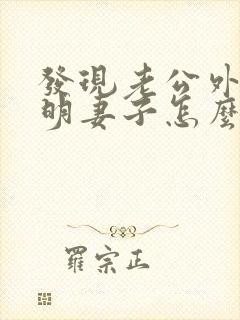 發現老公外
明妻子怎麼
羅宗正